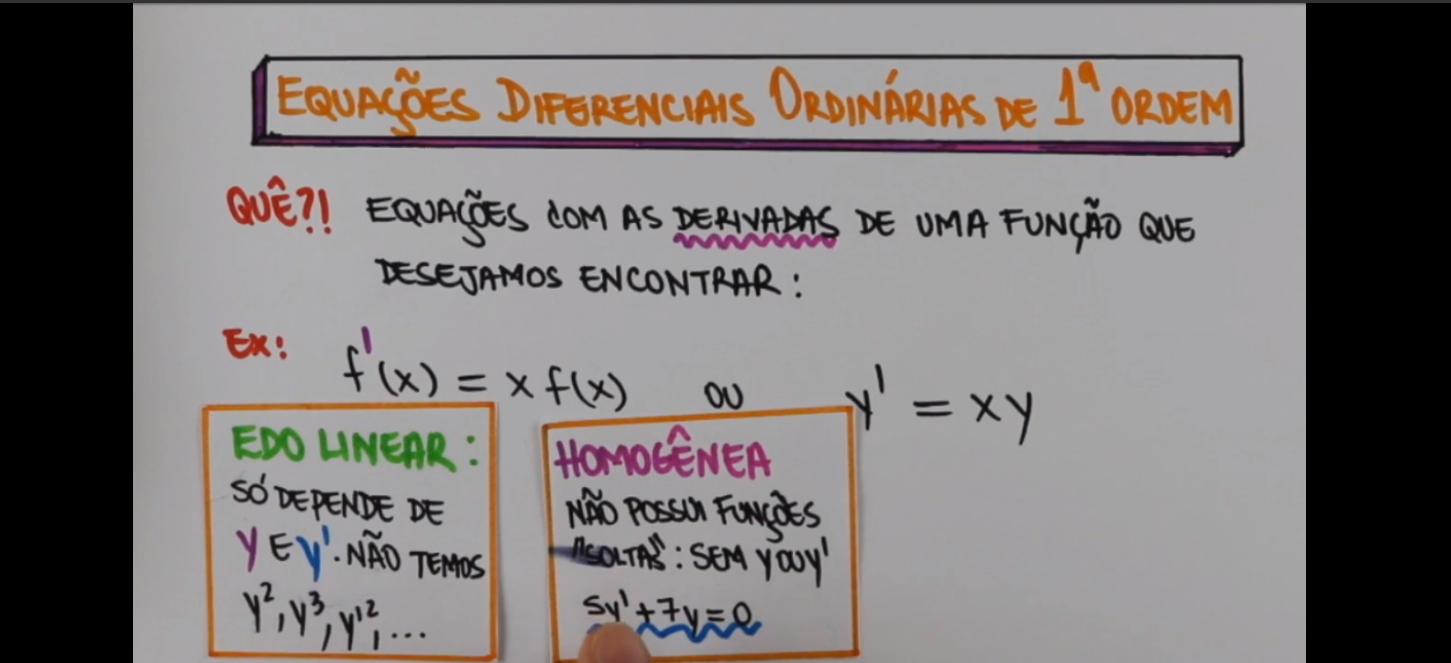 EQUAÇÕES DIFERENCIAIS ORDINÁRIAS DE 1ª ORDEM
QUÊ?! EQUAÇÕES COM AS DERIVADAS DE UMA FUNÇÃO QUE
DESEJAMOS ENCONTRAR:
Ex: f'(x) = x f(x) OU y' = xy
EDO LINEAR:
SÓ DEPENDE DE
y E y'. NÃO TEMOS
y², y³, y'², ...
HOMOGÊNEA
NÃO POSSUI FUNÇÕES
"SOLTAS": SEM y OU y'
5y' + 7y = 0